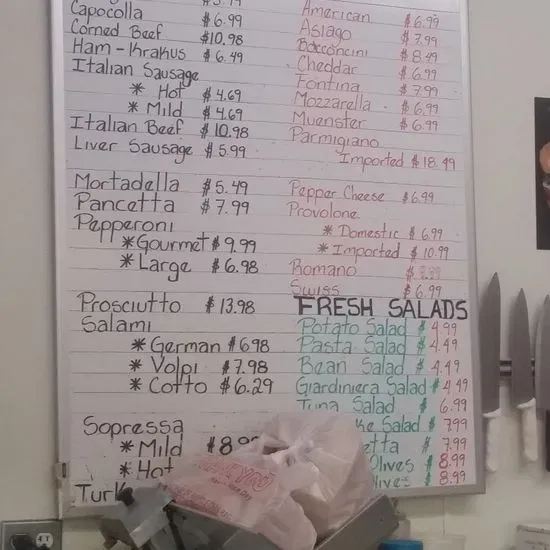 Capocolla $6.99
Corned Beef $10.98
Ham-Krakus $6.49
Italian Sausage
* Hot $4.69
* Mild $4.69
Italian Beef $10.98
Liver Sausage $5.99
Mortadella $5.49
Pancetta $7.99
Pepperoni
*Gourmet $9.99
*Large $6.98
Prosciutto $13.98
Salami
*German $6.98
*Volpi $7.98
*Cotto $6.29
Sopressa
*Mild
*Hot
American $6.99
Asiago $7.99
Bocconcini $8.49
Cheddar $6.99
Fontina $7.99
Mozzarella $6.99
Muenster $6.99
Parmigiano
Imported $18.99
Pepper Cheese $6.99
Provolone
* Domestic $6.99
* Imported $10.99
Romano
Swiss $6.99
FRESH SALADS
Potato Salad $4.99
Pasta Salad $4.49
Bean Salad $4.49
Giardiniera Salad $4.49
Tuna Salad $6.99
Salad $7.99
$7.99
Olives $8.99
$8.99